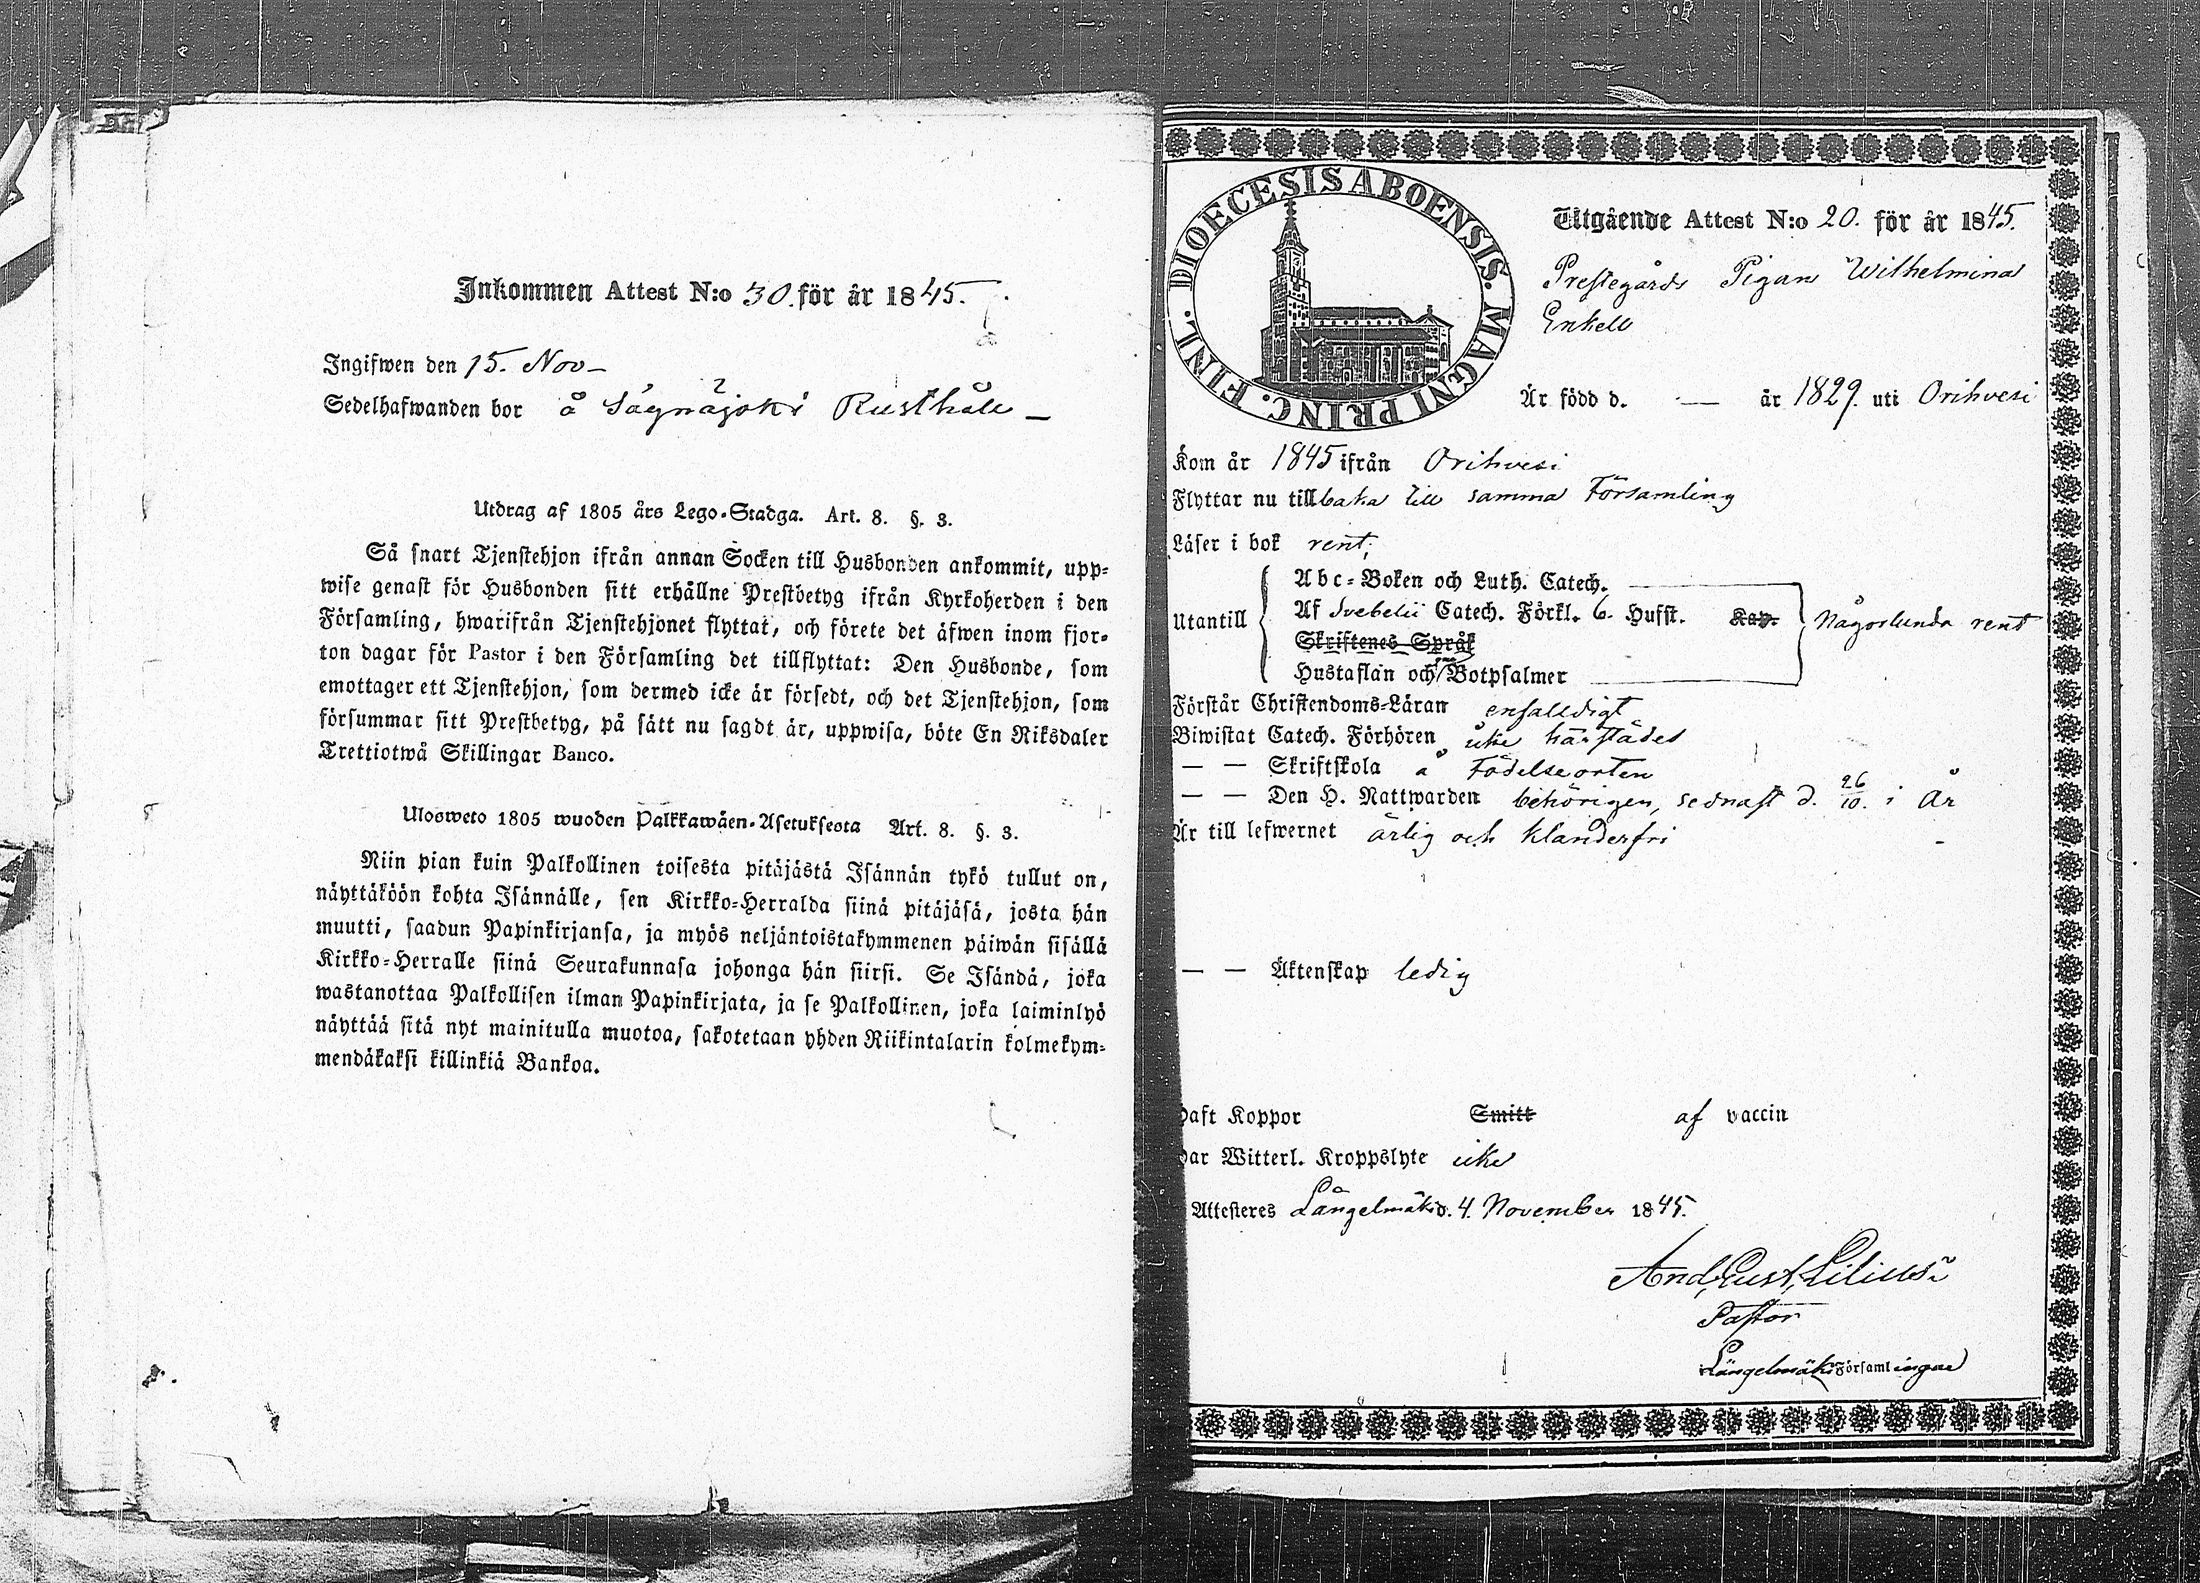 Inkommen Attest N:o 30. för år 1845.
Ingifwen den 15. Nov
Sedelhafwanden bor å Sägnäjoki Rusthåll
Utdrag af 1805 års Lego-Stadga. Art. 8. §. 3.
Så snart Tjenstehjon ifrån annan Socken till Husbonden ankommit, upp-
wise genast för Husbonden sitt erhållne Prestbetyg ifrån Kyrkoherden i den
Församling, hwarifrån Tjenstehjonet flyttat, och förete det äfwen inom fjor-
ton dagar för Pastor i den Församling det tillflyttat: Den Husbonde, som
emottager ett Tjenstehjon, som dermed icke är försedt, och det Tjenstehjon, som
försummar sitt Prestbetyg, på sätt nu sagdt är, uppwisa, böte En Riksdaler
Trettiotwå Skillingar Banco.
Ulosweto 1805 wuoden Palkkawäen-Asetuksesta Art. 8. §. 3.
Niin pian kuin Palkollinen toisesta pitäjästä Isännän tykö tullut on,
näyttäköön kohta Isännälle, sen Kirkko-Herralda siinä pitäjäsä, josta hän
muutti, saadun Papinkirjansa, ja myös neljäntoistakymmenen päiwän sisällä
Kirkko-Herralle siinä Seurakunnasa johonga hän siirsi. Se Isändä, joka
wastanottaa Palkollisen ilman Papinkirjata, ja se Palkollinen, joka laiminlyö
näyttää sitä nyt mainitulla muotoa, sakotetaan yhden Riikintalarin kolmekym-
mendäkaksi killinkiä Bankoa.
DIOECESIS ABOENSIS. MAGNI PRINC. FINL.
Utgående Attest N:o 20. för år 1845.
Prestegårds Pigan Wilhelmina
Enkell
Är född d. — år 1829. uti Orihvesi
Kom år 1845 ifrån Orihvesi
Flyttar nu tillbaka till samma Församling
Läser i bok rent;
Abc-Boken och Luth. Catech.
Utantill Af Svebelii Catech. Förkl. 6. Hufst. Kap. Någorlunda rent
Skriftenes Språk
Hustaflan och Botpsalmer
Förstår Christendoms-Läran enfalldigt
Biwistat Catech. Förhören icke härstädes
— — Skriftskola å Födelseorten
— — Den H. Nattwarden behörigen, sednast d. 26/10. i År
Är till lefwernet ärlig och klanderfri
— — Äktenskap ledig
Haft Koppor Smitt af vaccin
Har Witterl. Kroppslyte icke
Attesteres Längelmäki d. 4. November 1845.
And, Gust, Lilius
Pastor
Längelmäki Församlingar